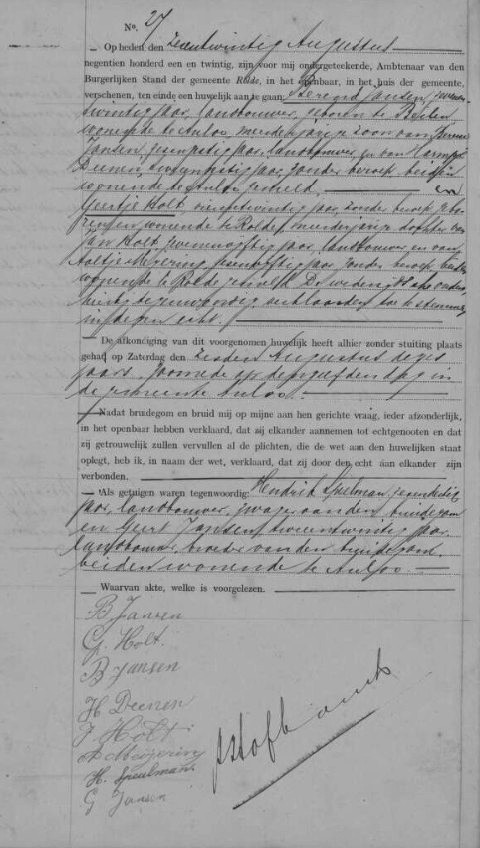 No. 27
Op heden den zeventwintig Augustus
negentien honderd een en twintig, zijn voor mij ondergeteekende, Ambtenaar van den
Burgerlijken Stand der gemeente Rolde, in het openbaar, in het huis der gemeente,
verschenen, ten einde een huwelijk aan te gaan: Berend Jansen,
twintig jaar, landbouwer, geboren te Beilen
wonende te Anloo, meerderjarige zoon van Berend
Jansen, jaar, landbouwer en van Harmpje
Deenen, jaar, zonder beroep, beiden
wonende te Anloo en
Geertje Holt jaar, zonder beroep, gebo-
ren en wonende te Rolde, meerderjarige dochter van
Jan Holt, jaar, landbouwer en van
Aaltje Meijering, jaar, zonder beroep, beiden
wonende te Rolde
in dezen echt.
De afkondiging van dit voorgenomen huwelijk heeft alhier zonder stuiting plaats
gehad op Zaterdag den zesden Augustus dezes
jaars, alsmede op denzelfden dag in
de gemeente Anloo.
Nadat bruidegom en bruid mij op mijne aan hen gerichte vraag, ieder afzonderlijk,
in het openbaar hebben verklaard, dat zij elkander aannemen tot echtgenooten en dat
zij getrouwelijk zullen vervullen al de plichten, die de wet aan den huwelijken staat
oplegt, heb ik, in naam der wet, verklaard, dat zij door den echt aan elkander zijn
verbonden.
Als getuigen waren tegenwoordig: Hendrik Speelman,
jaar, landbouwer, zwager van den bruidegom
en Geert Jansen, tweeentwintig jaar,
landbouwer, broeder van den bruidegom,
beiden wonende te Anloo.
Waarvan akte, welke is voorgelezen.
B Jansen
G. Holt.
B Jansen
H Deenen
J Holt
A Meijering
H. Speulman
G Jansen